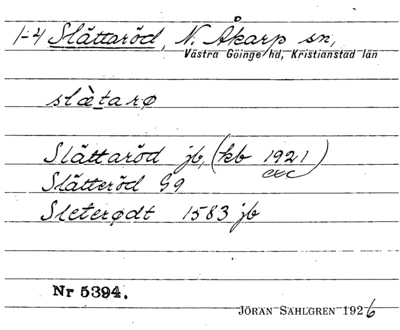 1-4 Slättaröd, N. Åkarp sn,
Västra Göinge hd, Kristianstad län
slæ̀tarø
Slättaröd jb, (kb 1921)
exc
Slätteröd G9
Sleterødt 1583 jb
Nr 5394.
JÖRAN SAHLGREN 1926